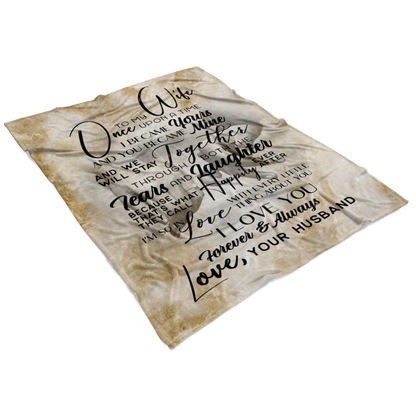 TO MY Wife
Once UPON A TIME
I BECAME Yours
AND YOU BECAME Mine
AND WE Together
WILL STAY
THROUGH BOTH THE
Tears AND Laughter
BECAUSE Happily EVER
THAT'S WHAT AFTER
THEY CALL
I'M SO IN Love WITH EVERY LITTLE
THING ABOUT YOU
I LOVE YOU
Forever & Always
Love, YOUR HUSBAND